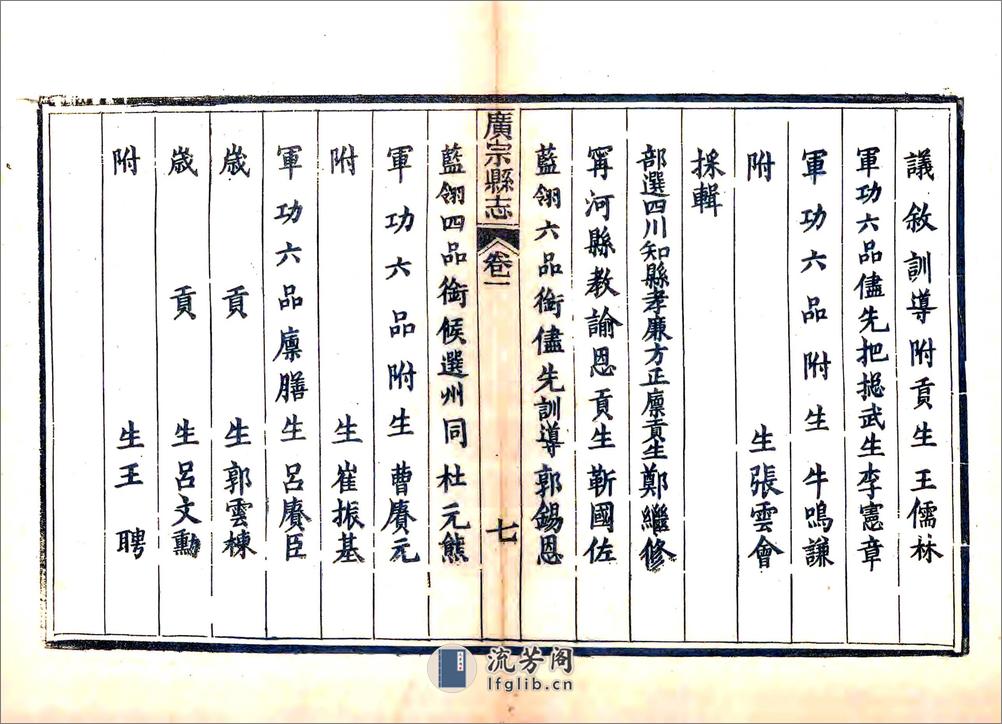 議敘訓導附貢生王儒林
軍功六品儘先把摠武生李憲章
軍功六品附生牛鳴謙
附生張雲會
採輯
部選四川知縣孝廉方正廪貢生鄭繼修
寗河縣教諭恩貢生靳國佐
藍翎六品銜儘先訓導郭錫恩
廣宗縣志
卷二
七
藍翎四品銜候選州同杜元熊
軍功六品附生曹賡元
附生崔振基
軍功六品廪膳生呂賡臣
歲貢生郭雲棟
歲貢生呂文勳
附生王聘
流芳阁
lfglib.cn